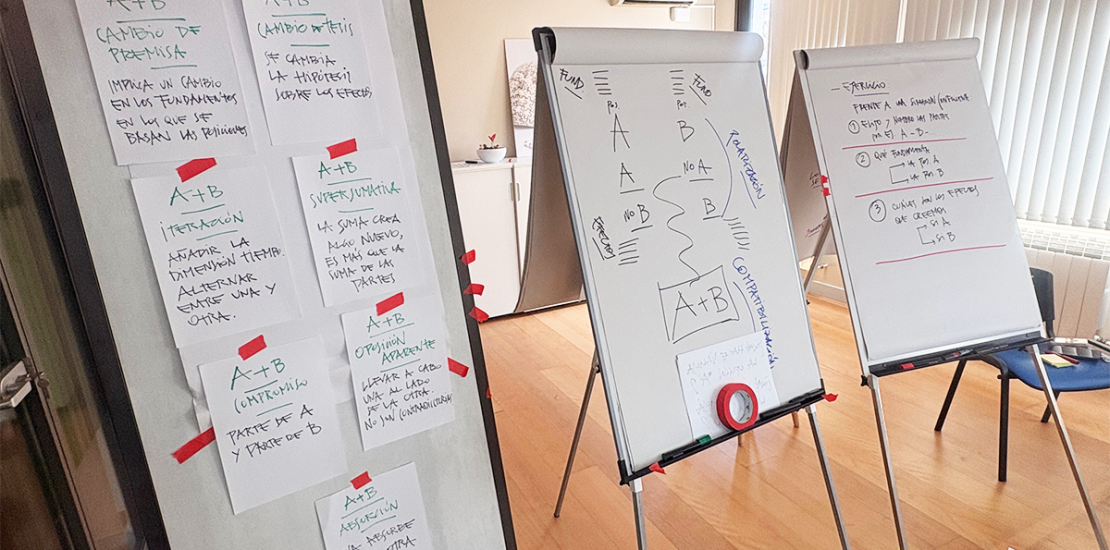 A+B
CAMBIO DE
PREMISA
IMPLICA UN CAMBIO
EN LOS FUNDAMENTOS
EN LOS QUE SE
BASAN LAS POSICIONES
A+B
CAMBIO DE TESIS
SE CAMBIA
LA HIPÓTESIS
SOBRE LOS EFECTOS
A+B
ITERACIÓN
AÑADIR LA
DIMENSIÓN TIEMPO.
ALTERNAR
ENTRE UNA Y
OTRA.
A+B
SUPERSUMATIVA
LA SUMA CREA
ALGO NUEVO,
ES MÁS QUE LA
SUMA DE LAS
PARTES
A+B
COMPROMISO
PARTE DE A
Y PARTE DE B
A+B
OPOSICIÓN
APARENTE
LLEVAR A CABO
UNA AL LADO
DE LA OTRA.
NO SON CONTRADICTORIAS
A+B
ABSORCIÓN
UNA ABSORBE
OTRA
FUND
FUND
POS.
POS.
A
B
A
NO A
NO B
B
EFECTOS
POLARIZACIÓN
A+B
COMPATIBILIZACIÓN
- EJERCICIO
FRENTE A UNA SITUACIÓN
① ELIJO Y NOMBRO LAS
A-B-
② QUÉ FUNDAMENTA
LA POS. A
LA POS. B
③ CUÁLES SON LOS EFECTOS
QUE CREEMOS
SI A
SI B